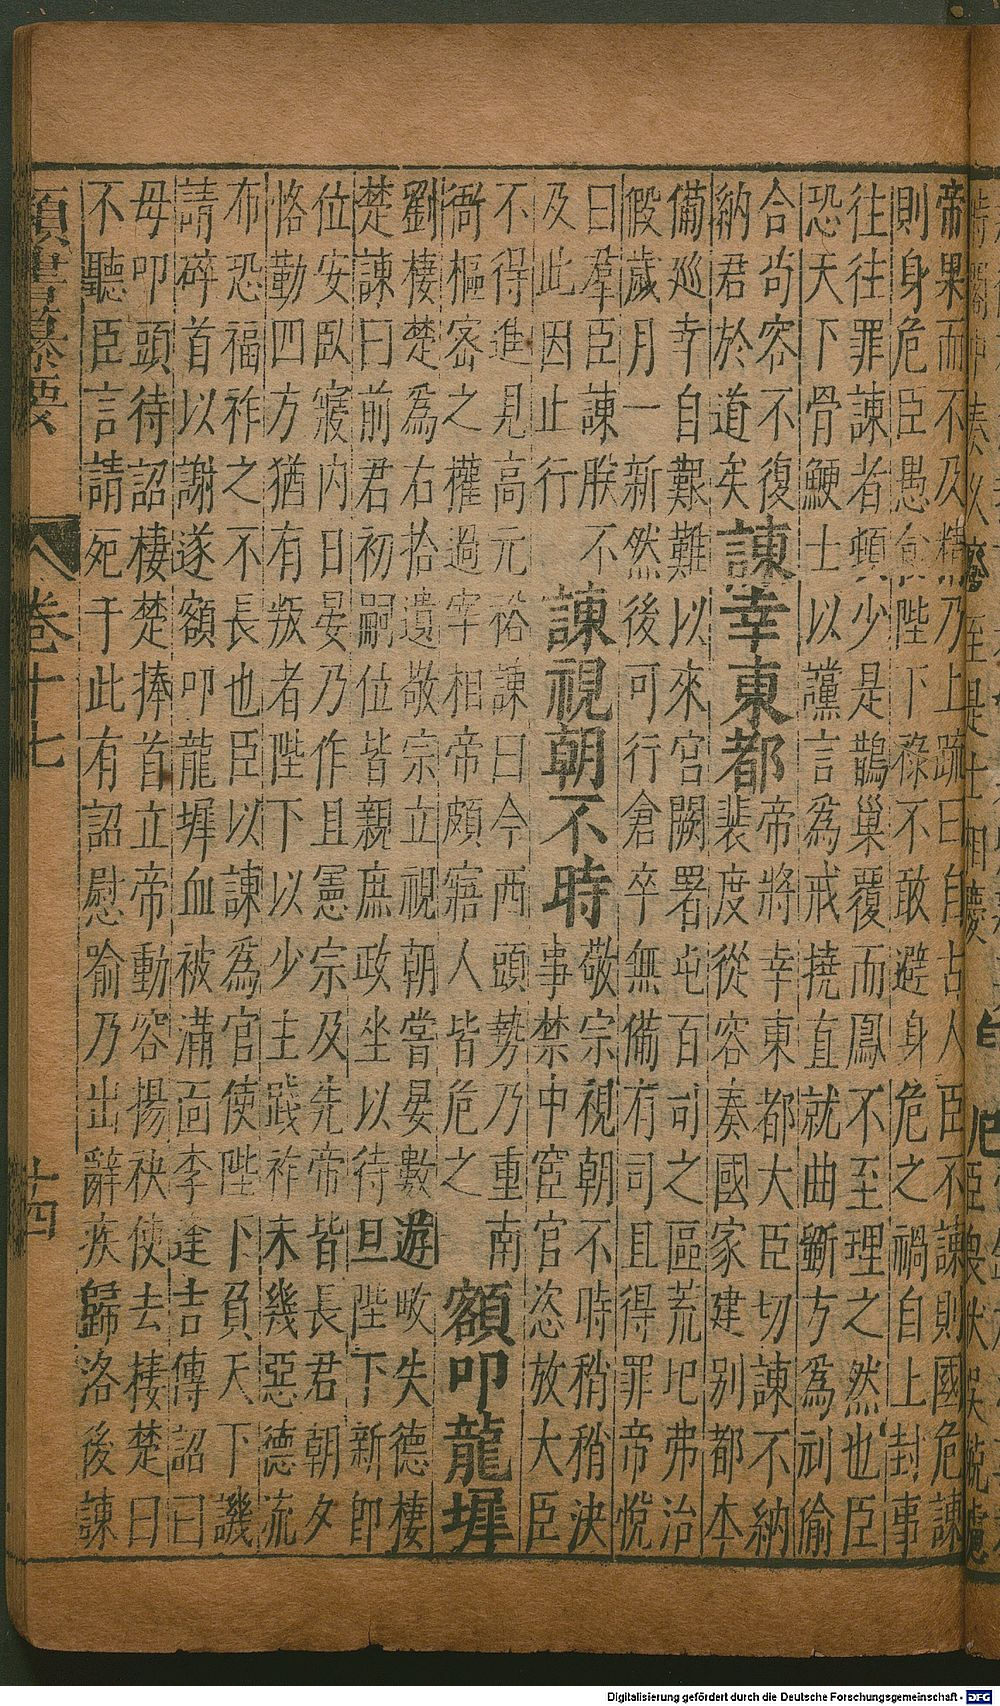 帝果而不及精然乃上疏曰自古人臣不諫則國危諫
則身危臣愚食陛下祿不敢避身危之禍自上封事
往往罪諫者頓少是鵲巢覆而鳳不至理之然也臣
恐天下骨鯁士以讜言為戒撓直就曲斵方為刓偷
合苟容不復
納君於道矣
諫幸東都
帝將幸東都大臣切諫不納
裴度從容奏國家建别都本
備巡幸自艱難以來宮闕署屯百司之區荒圯弗治
假歲月一新然後可行倉卒無備有司且得罪帝悅
曰羣臣諫朕不
及此因止行
諫視朝不時
敬宗視朝不時稍稍決
事禁中宦官恣放大臣
不得進見高元裕諫曰今西頭勢乃重南
衙樞宻之權過宰相帝頗寤人皆危之
額叩龍墀
劉棲楚為右拾遺敬宗立視朝嘗晏數遊畋失德棲
楚諫曰前君初嗣位皆親庶政坐以待旦陛下新即
位安臥寢内日晏乃作且憲宗及先帝皆長君朝夕
恪勤四方猶有叛者陛下以少主踐祚未幾惡德流
布恐福祚之不長也臣以諫為官使陛下負天下譏
請碎首以謝遂額叩龍墀血被滿面李逢吉傳詔曰
毋叩頭待詔棲楚捧首立帝動容揚袂使去棲楚曰
不聽臣言請死于此有詔慰喻乃出辭疾歸洛後諫
類書纂要 卷十七 十四
Digitalisierung gefördert durch die Deutsche Forschungsgemeinschaft - DFG